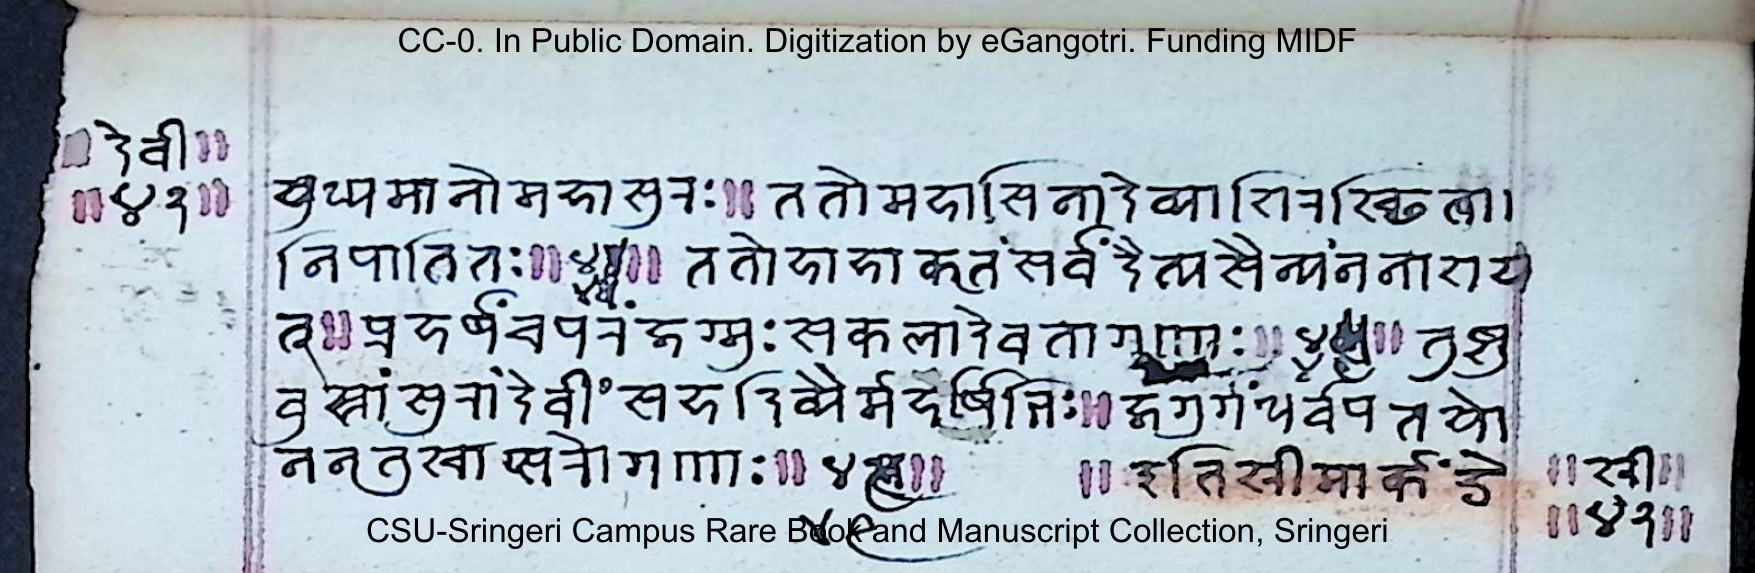 CC-0. In Public Domain. Digitization by eGangotri. Funding MIDF
देवी॥
॥४१॥
युध्यमानो महासुरः॥ ततो महासिना देव्या शिरश्छित्वा।
निपातितः॥ ततो हाहाकृतं सर्वं दैत्यसैन्यं ननाशय
त्॥ प्रहर्षं च परं जग्मुः सकला देवतागणाः॥ तुष्टु
वुस्तां सुरां देवीं सह दिव्यैर्महर्षिभिः॥ जगुर्गंधर्वपतयो
ननृतुश्चाप्सरोगणाः॥ ॥इति श्रीमार्कंडे
श्री॥
॥४१॥
CSU-Sringeri Campus Rare Book and Manuscript Collection, Sringeri